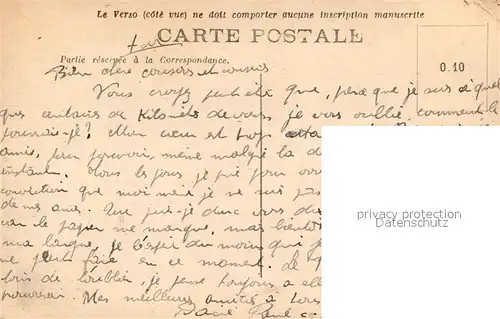 Le Verso (côté vue) ne doit comporter aucune inscription manuscrite
CARTE POSTALE
Partie réservée à la Correspondance.
0.10
Bien chers cousins et cousines
Vous croyez peut-être que, parce que je suis à quel
ques centaines de Kilomèts de vous, je vous oublie, comment le
pourrais-je? Mon cœur est trop atta
amis, pour pouvoir, même malgré la d
instant. Tous les jours je prie pour vou
conviction que moi même je ne suis pas
de mes amis. Que puis-je donc vous di
car le papier me manque, mais bientôt
ma langue, je l'espère du moins
ne peux faire en ce moment.
loin de l'oublier, je pense toujours à ell
pourrai. Mes meilleures amitiés à tous
privacy protection